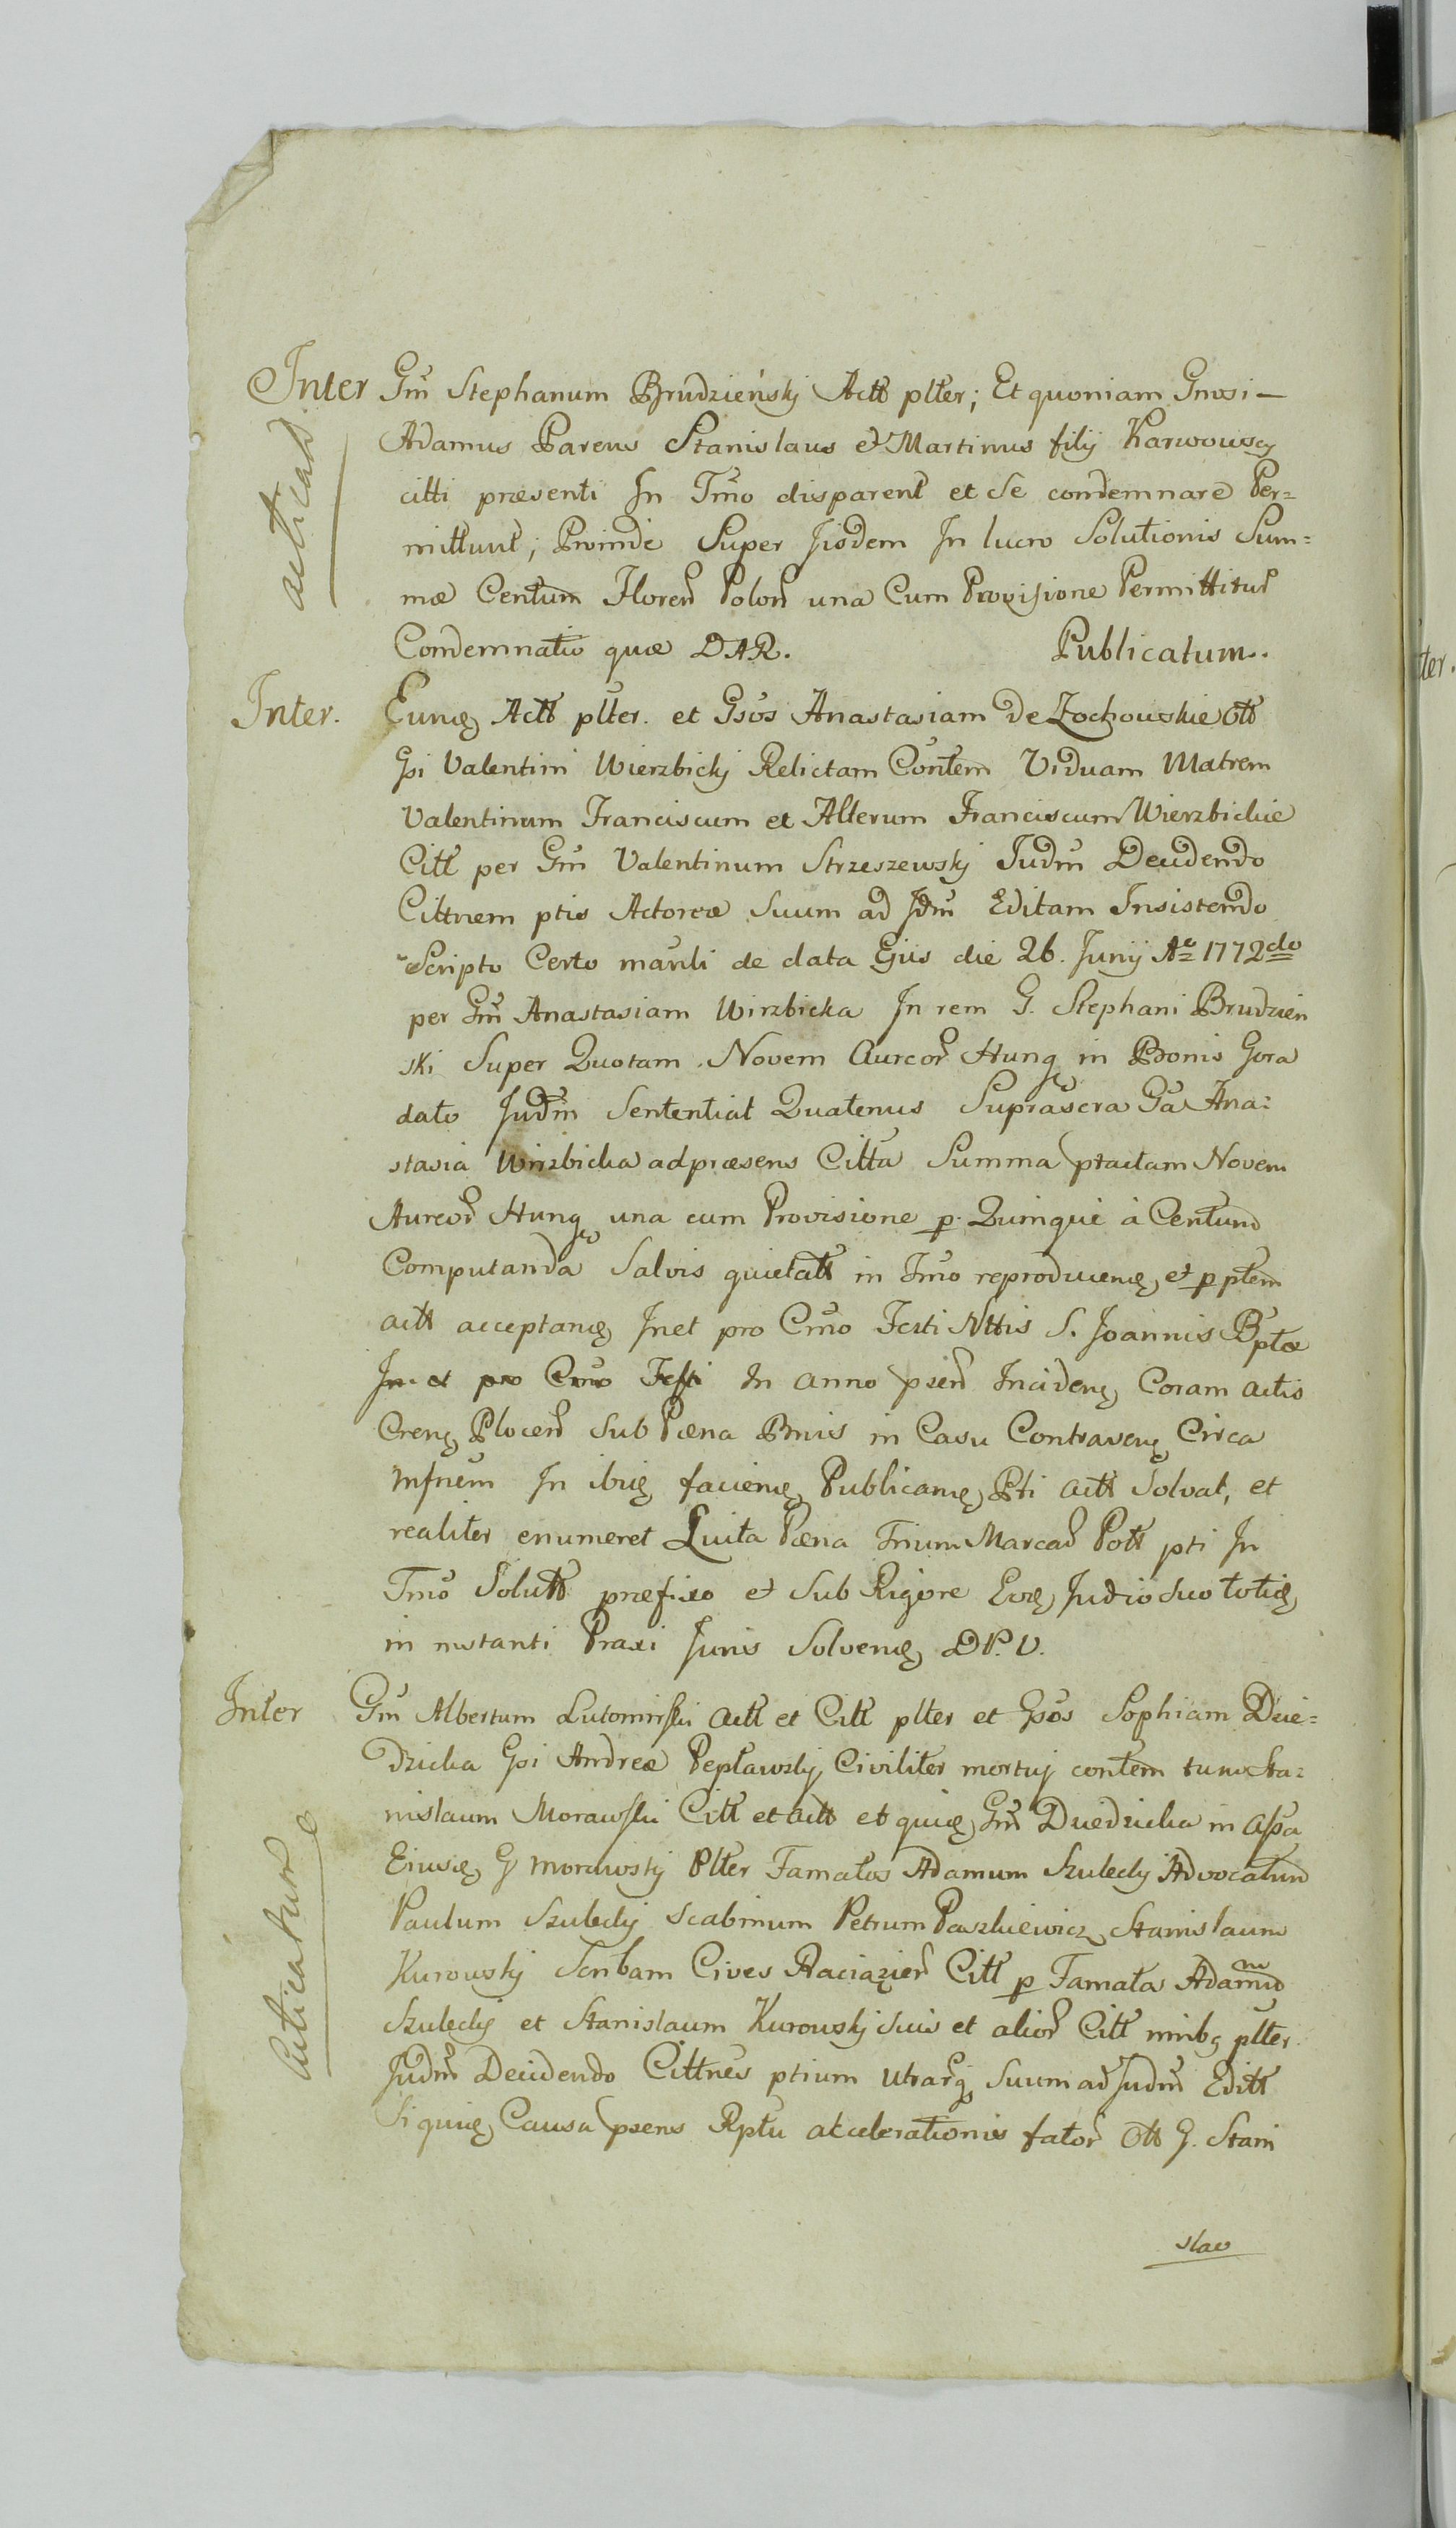 Inter Gm̃ Stephanum Brudzieńskj Actt pltter; Et quoniam Gnosi —
acticat
Adamus Parens Stanislaus et Martinus filij Karwowscy
citti præsenti In Tm̃o disparent et se condemnare Per=
mittunt; Proinde Super Jisdem In lucro Solutionis Sum=
mæ Centum Floren Polon una Cum Provisione Permittitur
Condemnatio quæ DAR. Publicatum.
Inter. Eunđ Actt pltter. et Gsos Anastasiam de Zochowskie Ott
Gsi Valentini Wierzbickj Relictam Contem Viduam Matrem
Valentinum Franciscum et Alterum Franciscum Wierzbickie
Citt per Gm̃ Valentinum Strzeszewskj Judm Decidendo
Cittnem ptis Actoreæ Suum ad Jdm̃ Editam Insistendo
Scripto Certo manli de data Ejus die 26. Junij Ao 1772do
per Gm̃ Anastasiam Wirzbicka In rem G. Stephani Brudzien
ski Super Quotam Novem Aureor Hung in Bonis Gora
dato Judm̃ Sententiat Quatenus Suprascra Ga Ana=
stasia Wirzbicka ad præsens Citta Summa ptactam Novem
Aureor Hung una cum Provisione p. Quinque à Centum
Computanda Salvis quietatt in Tm̃o reproducenđ et p ptem
actt acceptanđ Jnet pro Cm̃o Festi Nttis S. Joannis Bptæ
Jn et pro Cmo Festi In anno psen Incidenđ Coram actis
Crenđ Plocen Sub Pæna Bnnis in Casu Contravenđ Circa
mfnem In ibiđ facienđ Publicanđ Pti actt Solvat, et
realiter enumeret Luita Pæna Trium Marcar Pott pti In
Tm̃o Solutt præfixo et Sub Rigore Evđ Judicio suo totiđ
in instanti Praxi Juris Solvenđ DP.V.
Inter Gm̃ Albertum Lutomirski actt et Citt pltter et Gsos Sophiam Dzie=
dzicka Gsi Andreæ Pepławskj Civiliter mortuj contem tum Sta=
nislaum Morawski Citt et actt et quiđ Gm̃ Dziedzicka in assa
Eiusđ G Morawskj Pltter Famatos Adamum Szuleckj Advocatum
acticatum
Paulum Szuleckj Scabinum Petrum Paszkiewicz Stanislaum
Kurowskj Scribam Cives Raciążien Citt p Famatos Adamum
Szuleckj et Stanislaum Kurowskj suis et alior Citt ninbs pltter
Judm̃ Decidendo Cittnes ptium utrarq Suum ad Judm̃ Editt
Siquiđ Causa psens Rptu accelerationis fator Ott G. Stani
slao